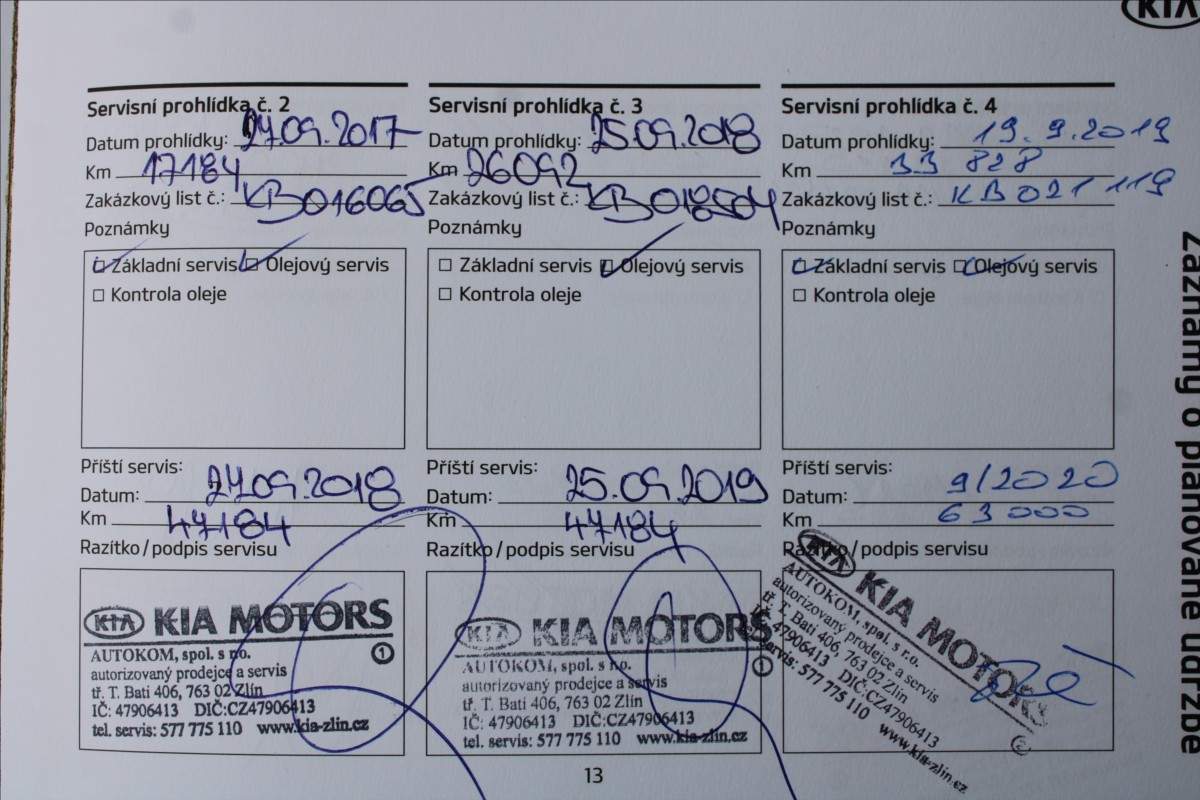 KIA
Servisní prohlídka č. 2
Datum prohlídky: 27.09.2017
Km 17184
Zakázkový list č.: KB016065
Poznámky
Základní servis Olejový servis
Kontrola oleje
Příští servis:
Datum: 27.09.2018
Km 47184
Razítko / podpis servisu
KIA KIA MOTORS
AUTOKOM, spol. s r.o.
1
autorizovaný prodejce a servis
tř. T. Bati 406, 763 02 Zlín
IČ: 47906413 DIČ:CZ47906413
tel. servis: 577 775 110 www.kia-zlin.cz
Servisní prohlídka č. 3
Datum prohlídky: 25.09.2018
Km 26092
Zakázkový list č.: KB018504
Poznámky
Základní servis Olejový servis
Kontrola oleje
Příští servis:
Datum: 25.09.2019
Km 47184
Razítko / podpis servisu
KIA KIA MOTORS
AUTOKOM, spol. s r.o.
1
autorizovaný prodejce a servis
tř. T. Bati 406, 763 02 Zlín
IČ: 47906413 DIČ:CZ47906413
tel. servis: 577 775 110 www.kia-zlin.cz
Servisní prohlídka č. 4
Datum prohlídky: 19.9.2019
Km 33 828
Zakázkový list č.: KB021119
Poznámky
Základní servis Olejový servis
Kontrola oleje
Příští servis:
Datum: 9/2020
Km 63 000
Razítko / podpis servisu
KIA KIA MOTORS
AUTOKOM, spol. s r.o.
autorizovaný prodejce a servis
tř. T. Bati 406, 763 02 Zlín
IČ: 47906413 DIČ:CZ47906413
servis: 577 775 110 www.kia-zlin.cz
Záznamy o plánované údržbě
13